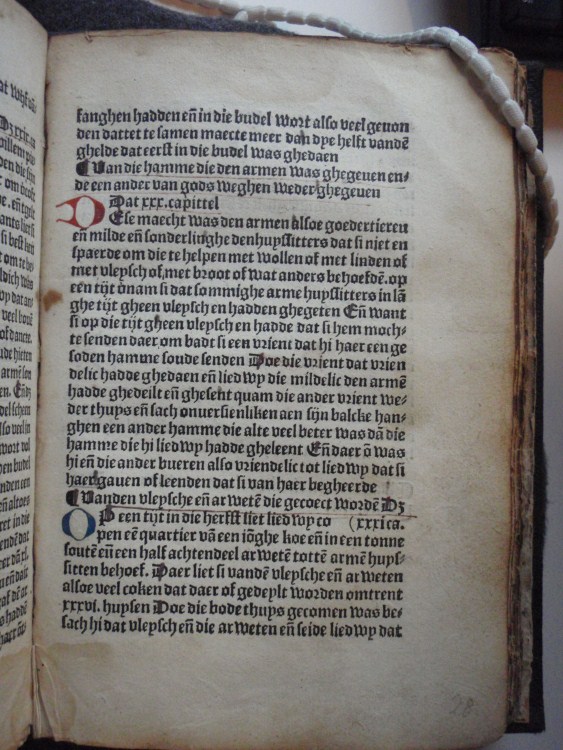 fanghen hadden eñ in die budel wort also veel geuon
den dattet te samen maecte meer dan dye helft vandē
ghelde dat eerst in die budel was ghedaen
¶ Uan die hamme die den armen was ghegeuen en-
de een ander van gods weghen weder ghegeuen
Dat xxx. capittel
DEse maecht was den armen alsoe goedertieren
eñ milde eñ sonderlinghe den huyssitters dat si niet en
spaerde om die te helpen met wollen of met linden of
met vleysch of met broot of wat anders behoefdē. op
een tijt v̄nam si dat sommighe arme huyssitters in lā
ghe tijt gheen vleysch en hadden ghegeten Eñ want
si op die tijt gheen vleysch en hadde dat si hem moch-
te senden daer om badt si een vrient dat hi haer een ge
soden hamme soude senden Doe die vrient dat vrien
delic hadde ghedaen eñ liedwy die mildelic den armē
hadde ghedeilt eñ ghesent quam die ander vrient we-
der thuys eñ sach onuersienliken aen sijn balcke han-
ghen een ander hamme die alte veel beter was dā die
hamme die hi liedwy hadde gheleent Eñ daer v̄ was
hi eñ die ander bueren also vriendelic tot liedwy dat si
haer gauen of leenden dat si van haer begheerde
¶ Uanden vleysche eñ arwetē die gecoect wordē Dz
OP een tijt in die herfst liet liedwy co (xxxi ca.
pen eē quartier vā een iōghe koe eñ in een tonne
soutē eñ een half achtendeel arwetē tottē armē huys-
sitten behoef. Daer liet si vandē vleysche eñ arweten
alsoe veel coken dat daer of gedeylt worden omtrent
xxxvi. huysen Doe die bode thuys gecomen was be-
sach hi dat vleysch eñ die arweten eñ seide liedwy dat
28